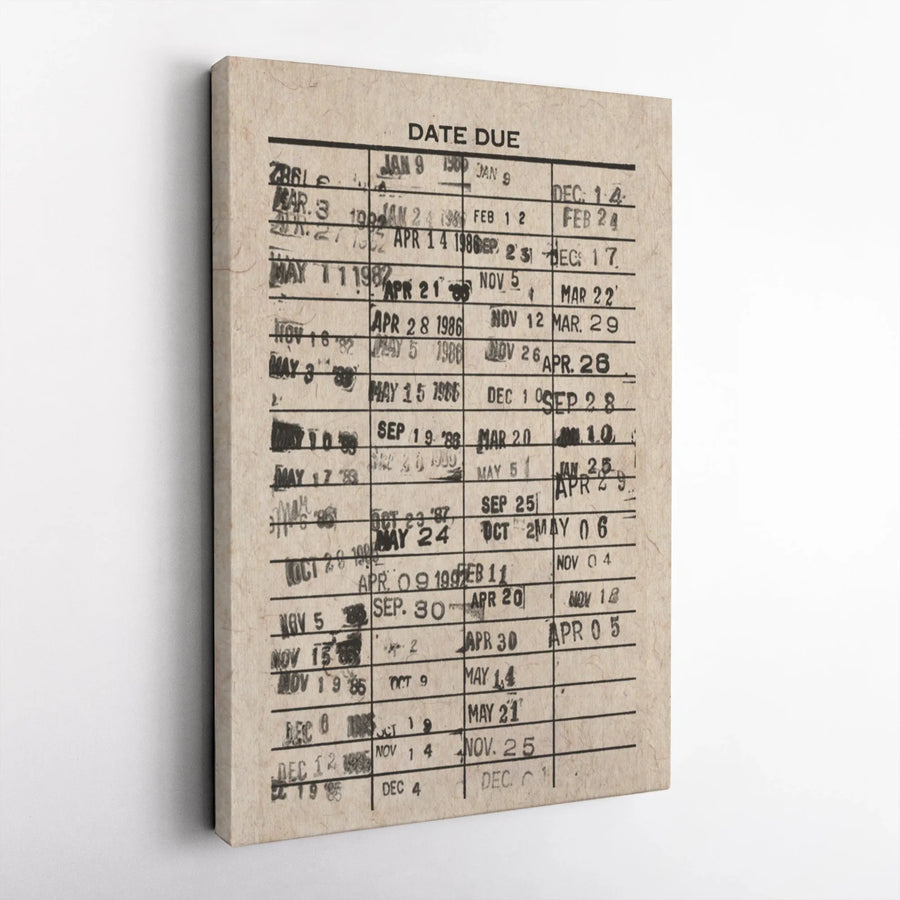 DATE DUE
MAR. 3 1982
APR. 27 1982
MAY 11 1982
NOV 16 '82
MAY 3 '83
MAY 10 '83
MAY 17 '83
OCT 28
NOV 5
NOV 15
NOV 19 '85
DEC 6
DEC 12
19 '85
JAN 9 1986
JAN 24 1986
APR 14 1986
APR 21 '86
APR 28 1986
MAY 5 1986
MAY 15 1986
SEP 19 '86
OCT 23 '87
MAY 24
APR. 09 1992
SEP. 30
2
OCT 9
OCT 19
NOV 14
DEC 4
JAN 9
FEB 12
SEP. 23
NOV 5
NOV 12
NOV 26
DEC 10
MAR 20
MAY 51
SEP 25
OCT 2
FEB 11
APR 20
APR 30
MAY 14
MAY 21
NOV. 25
DEC. 01
DEC. 14
FEB 24
DEC. 17
MAR 22
MAR. 29
APR. 26
SEP 28
10
JAN 25
APR 29
MAY 06
NOV 04
NOV 18
APR 05